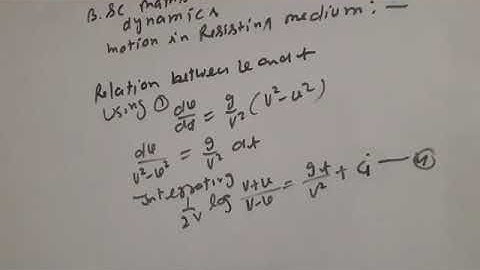 B.Sc
dynamics
motion in Resisting medium:—
Relation between v and t
using ① dv/dt = g/V² (V²-v²)
dv/V²-v² = g/V² dt
Integrating
1/2V log V+v/V-v = gt/V² + C₁ — ④